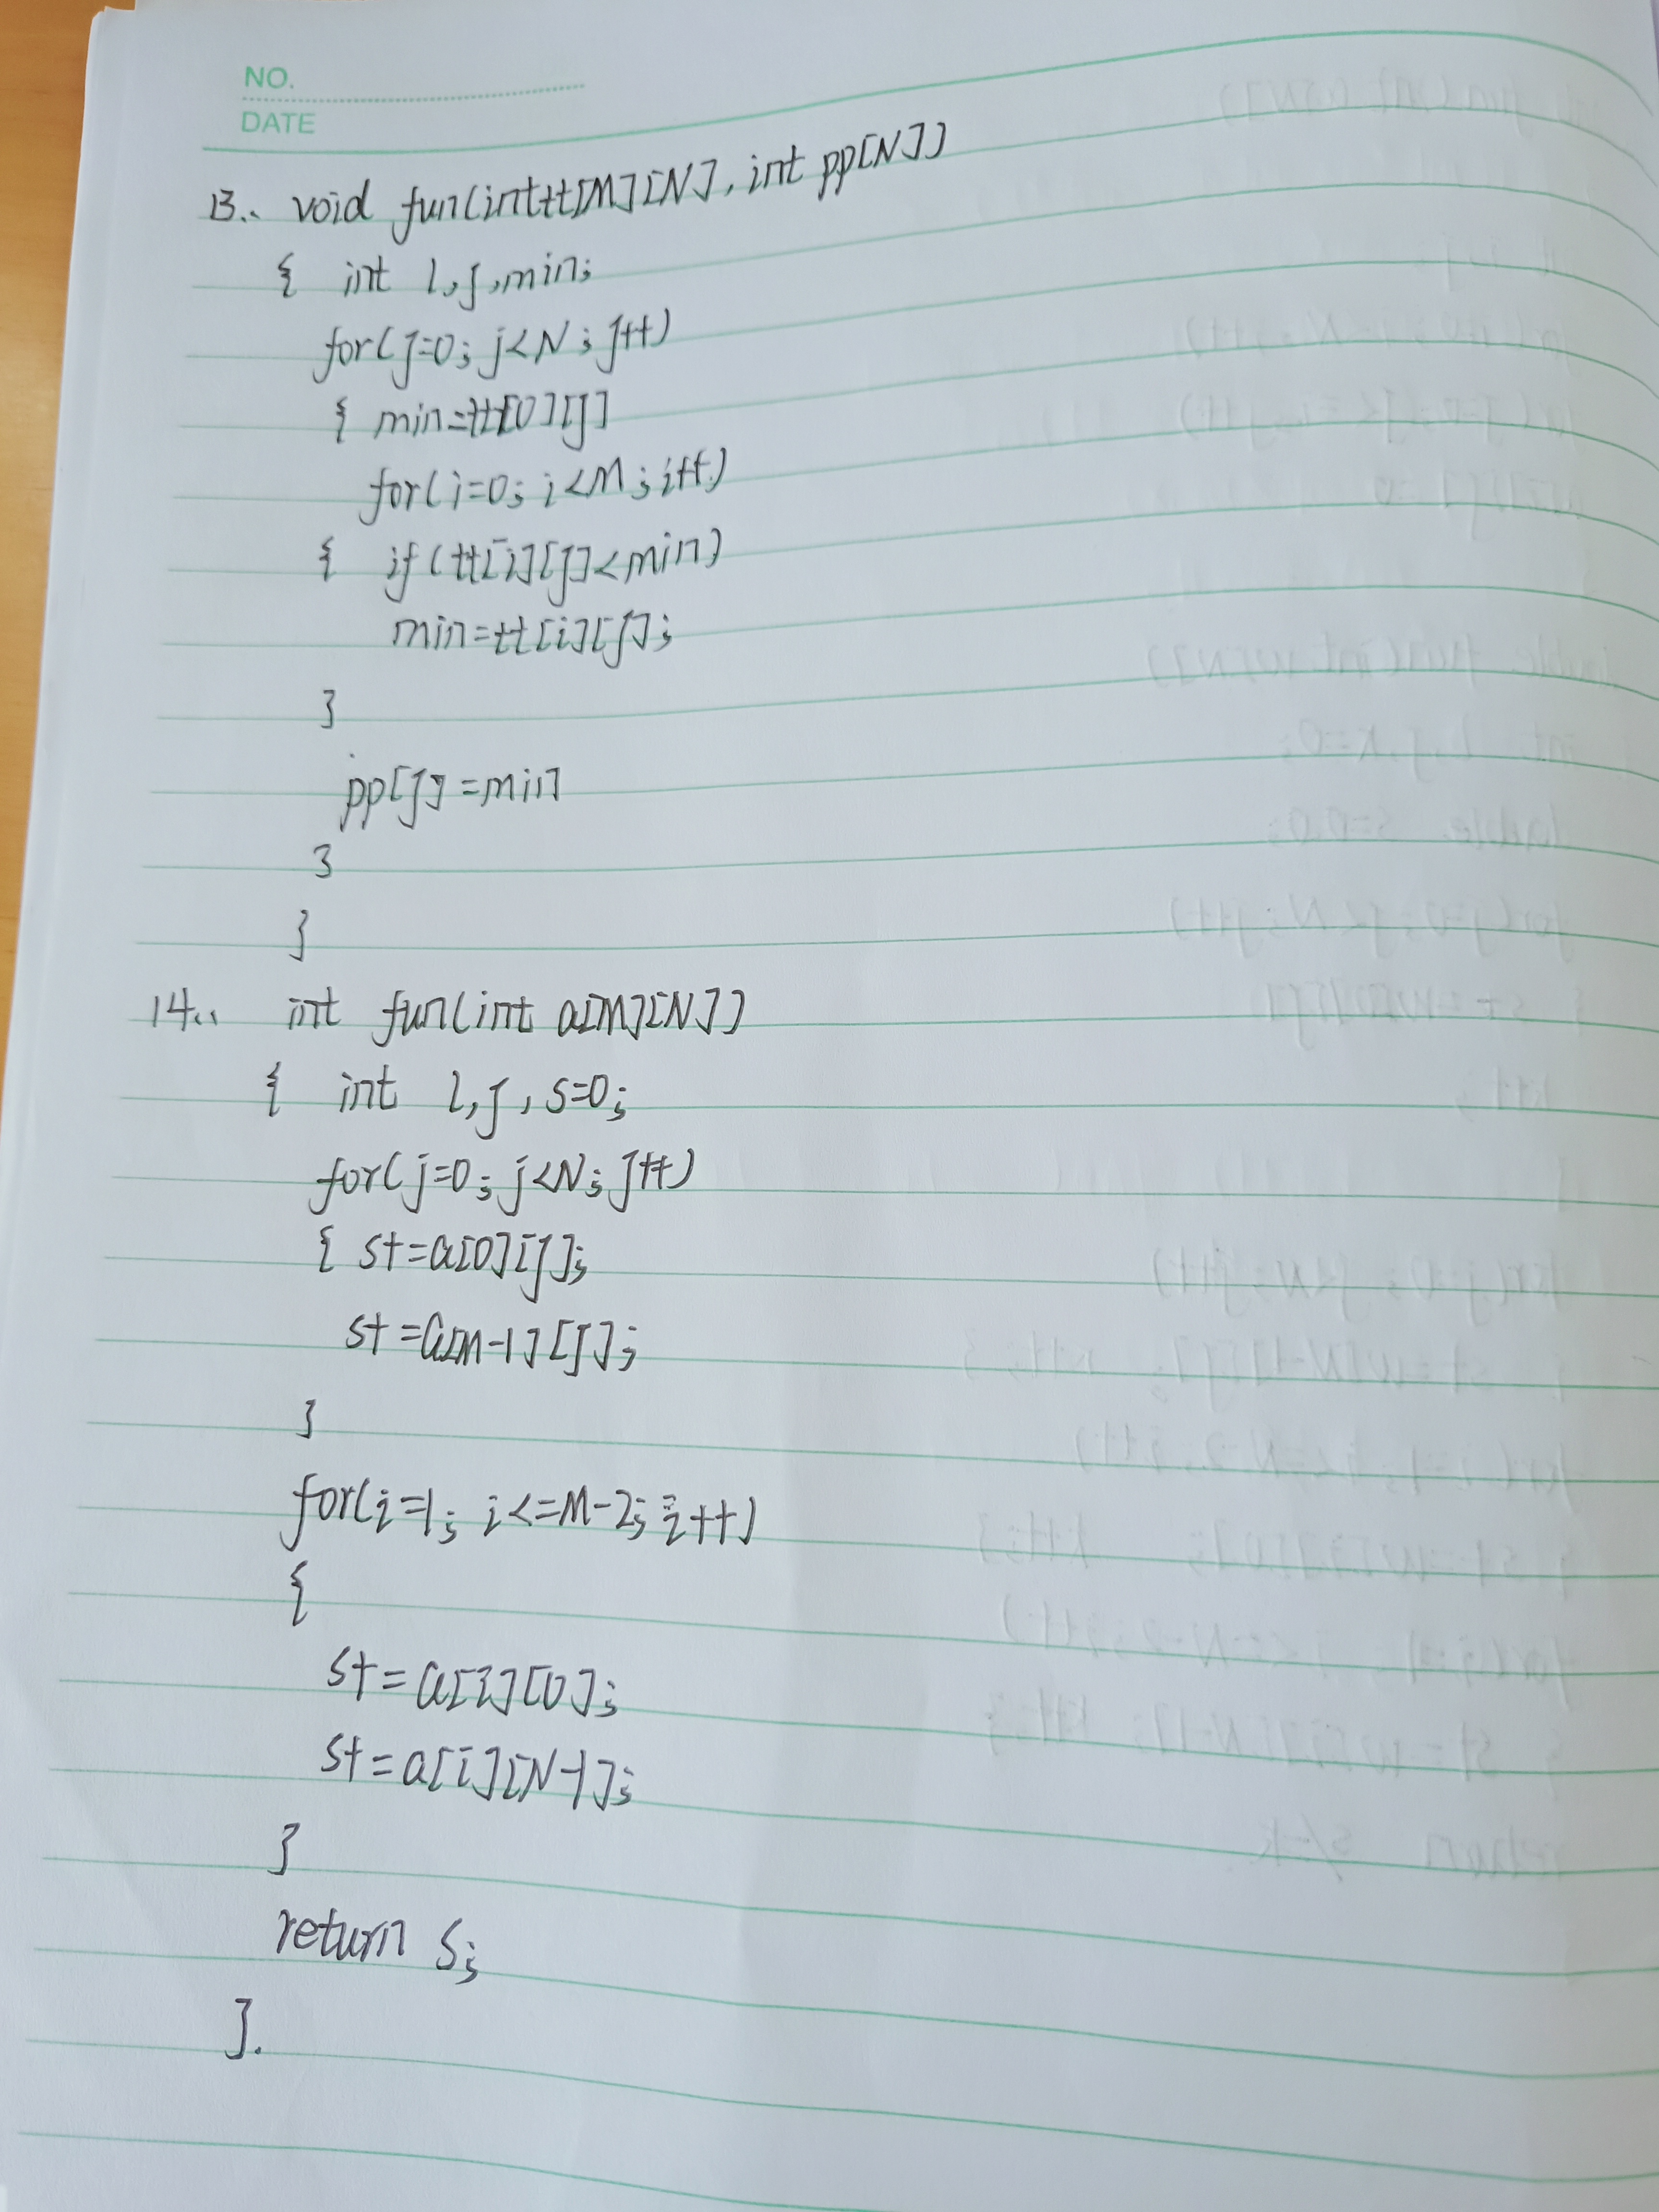 NO.
DATE
13.. void fun(int tt[M][N], int pp[N])
{ int i,j,min;
for(j=0; j<N; j++)
{ min=tt[0][j]
for(i=0; i<M; i++)
{ if(tt[i][j]<min)
min=tt[i][j];
}
pp[j]=min
}
}
14.. int fun(int a[M][N])
{ int i,j,s=0;
for(j=0; j<N; j++)
{ s+=a[0][j];
s+=a[M-1][j];
}
for(i=1; i<=M-2; i++)
{
s+=a[i][0];
s+=a[i][N-1];
}
return s;
}.